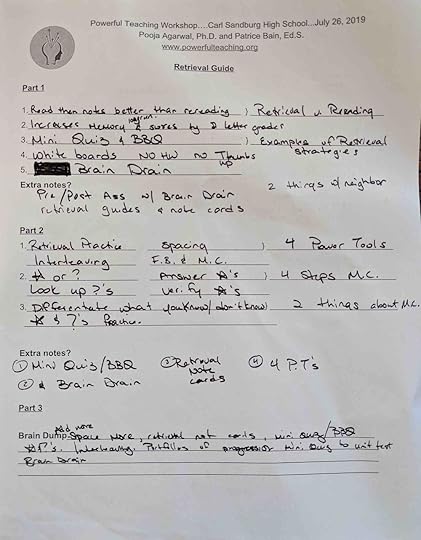 Powerful Teaching Workshop....Carl Sandburg High School...July 26, 2019
Pooja Agarwal, Ph.D. and Patrice Bain, Ed.S.
www.powerfulteaching.org
Retrieval Guide
Part 1
1. Read then notes better than rereading } Retrieval v Rereading
2. Increases memory & scores by letter grades
3. Mini Quiz & BBQ } Examples of Retrieval
4. White boards No HW no Thumbs up strategies
5. Brain Drain
Extra notes? 2 things w/ neighbor
Pre/Post Ass w/ Brain Drain
retrieval guides & note cards
Part 2
1. Retrieval Practice Spacing } 4 Power Tools
Interleaving F.B. & M.C.
2. * or ? Answer *'s } 4 Steps M.C.
Look up ?'s verify *'s
3. Differentiate what you know/don't know } 2 things about M.C.
* & ?'s Practice.
Extra notes?
① Mini Quiz/BBQ ③ Retrieval note cards ④ 4 P.T's
② & Brain Drain
Part 3
Add more
Brain Dump - Space more, retrieval not cards, mini quiz/BBQ
*?'s. Interleaving. Portfolios of progression mini quiz to unit test
Brain Drain